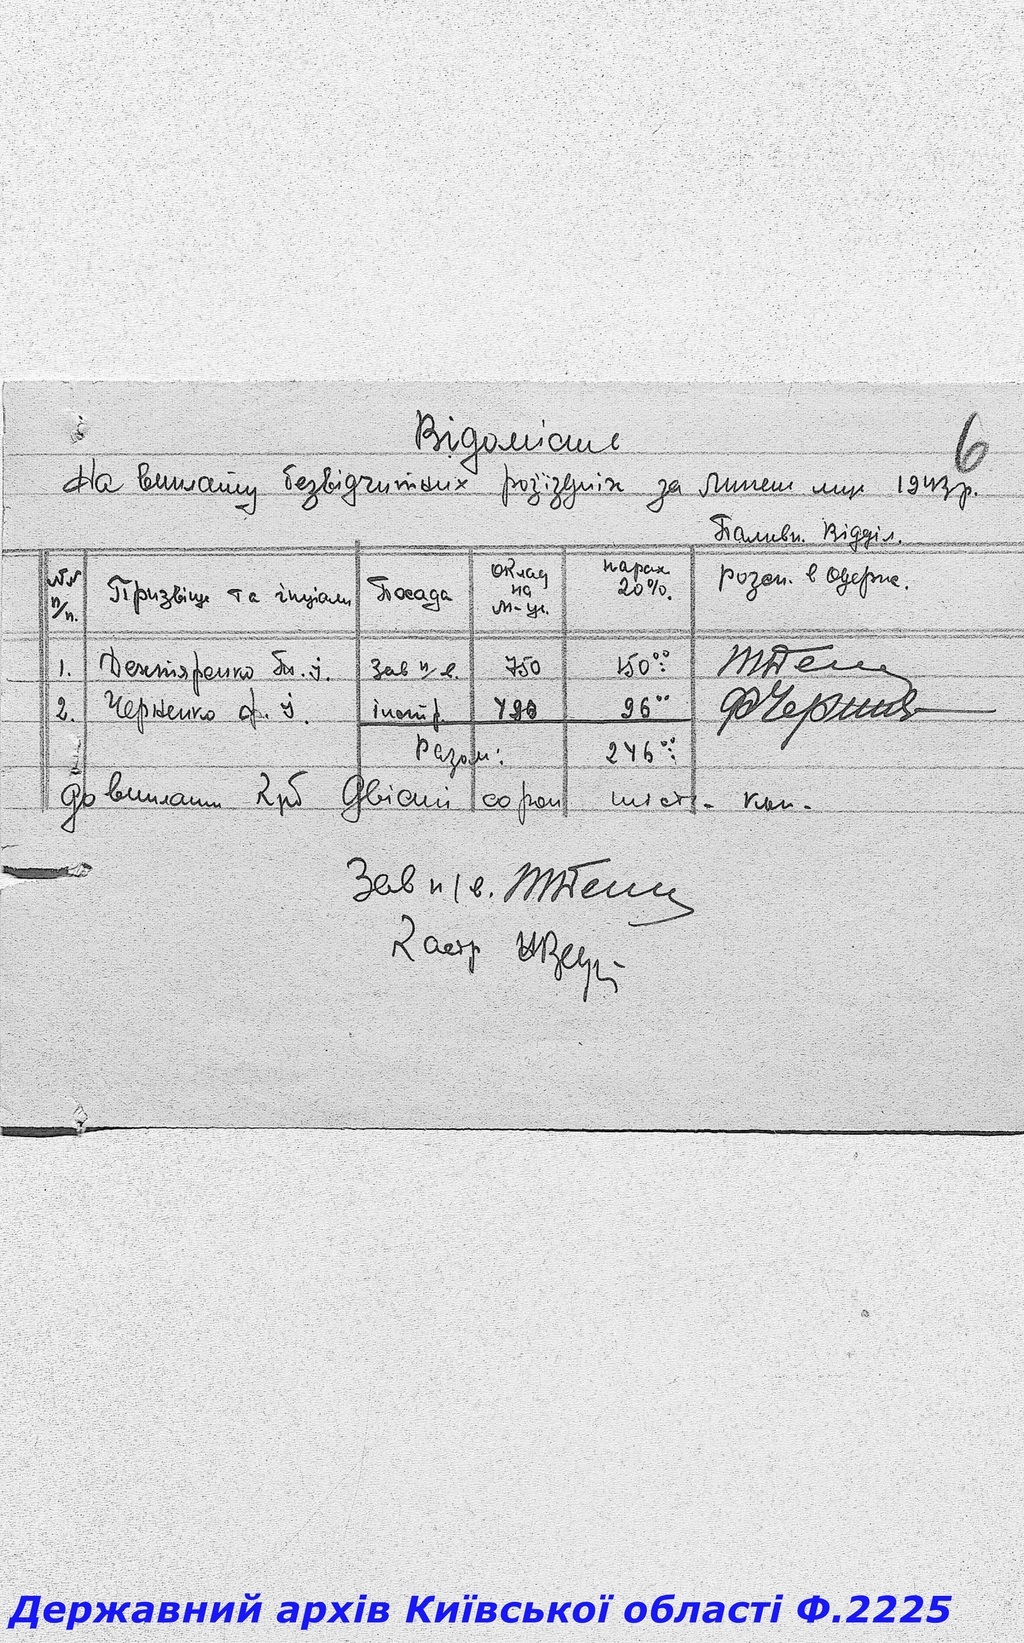 Відомість
6
На виплату безвідчитних розіздніх за липень міс 1943 р.
Паливн. Відділ.
№№ п/п. Призвіще та ініціали Посада оклад на м-ць. нарах. 20%. розп. в одерж.
1. Дехтяренко І. зав п/в. 750 150⁰⁰
2. Черненко Ф. І. інстр. 96⁰⁰
Разом: 246⁰⁰
До виплати Крб Двісті сорок шість. коп.
Зав п/в.
Касір
Державний архів Київської області Ф.2225